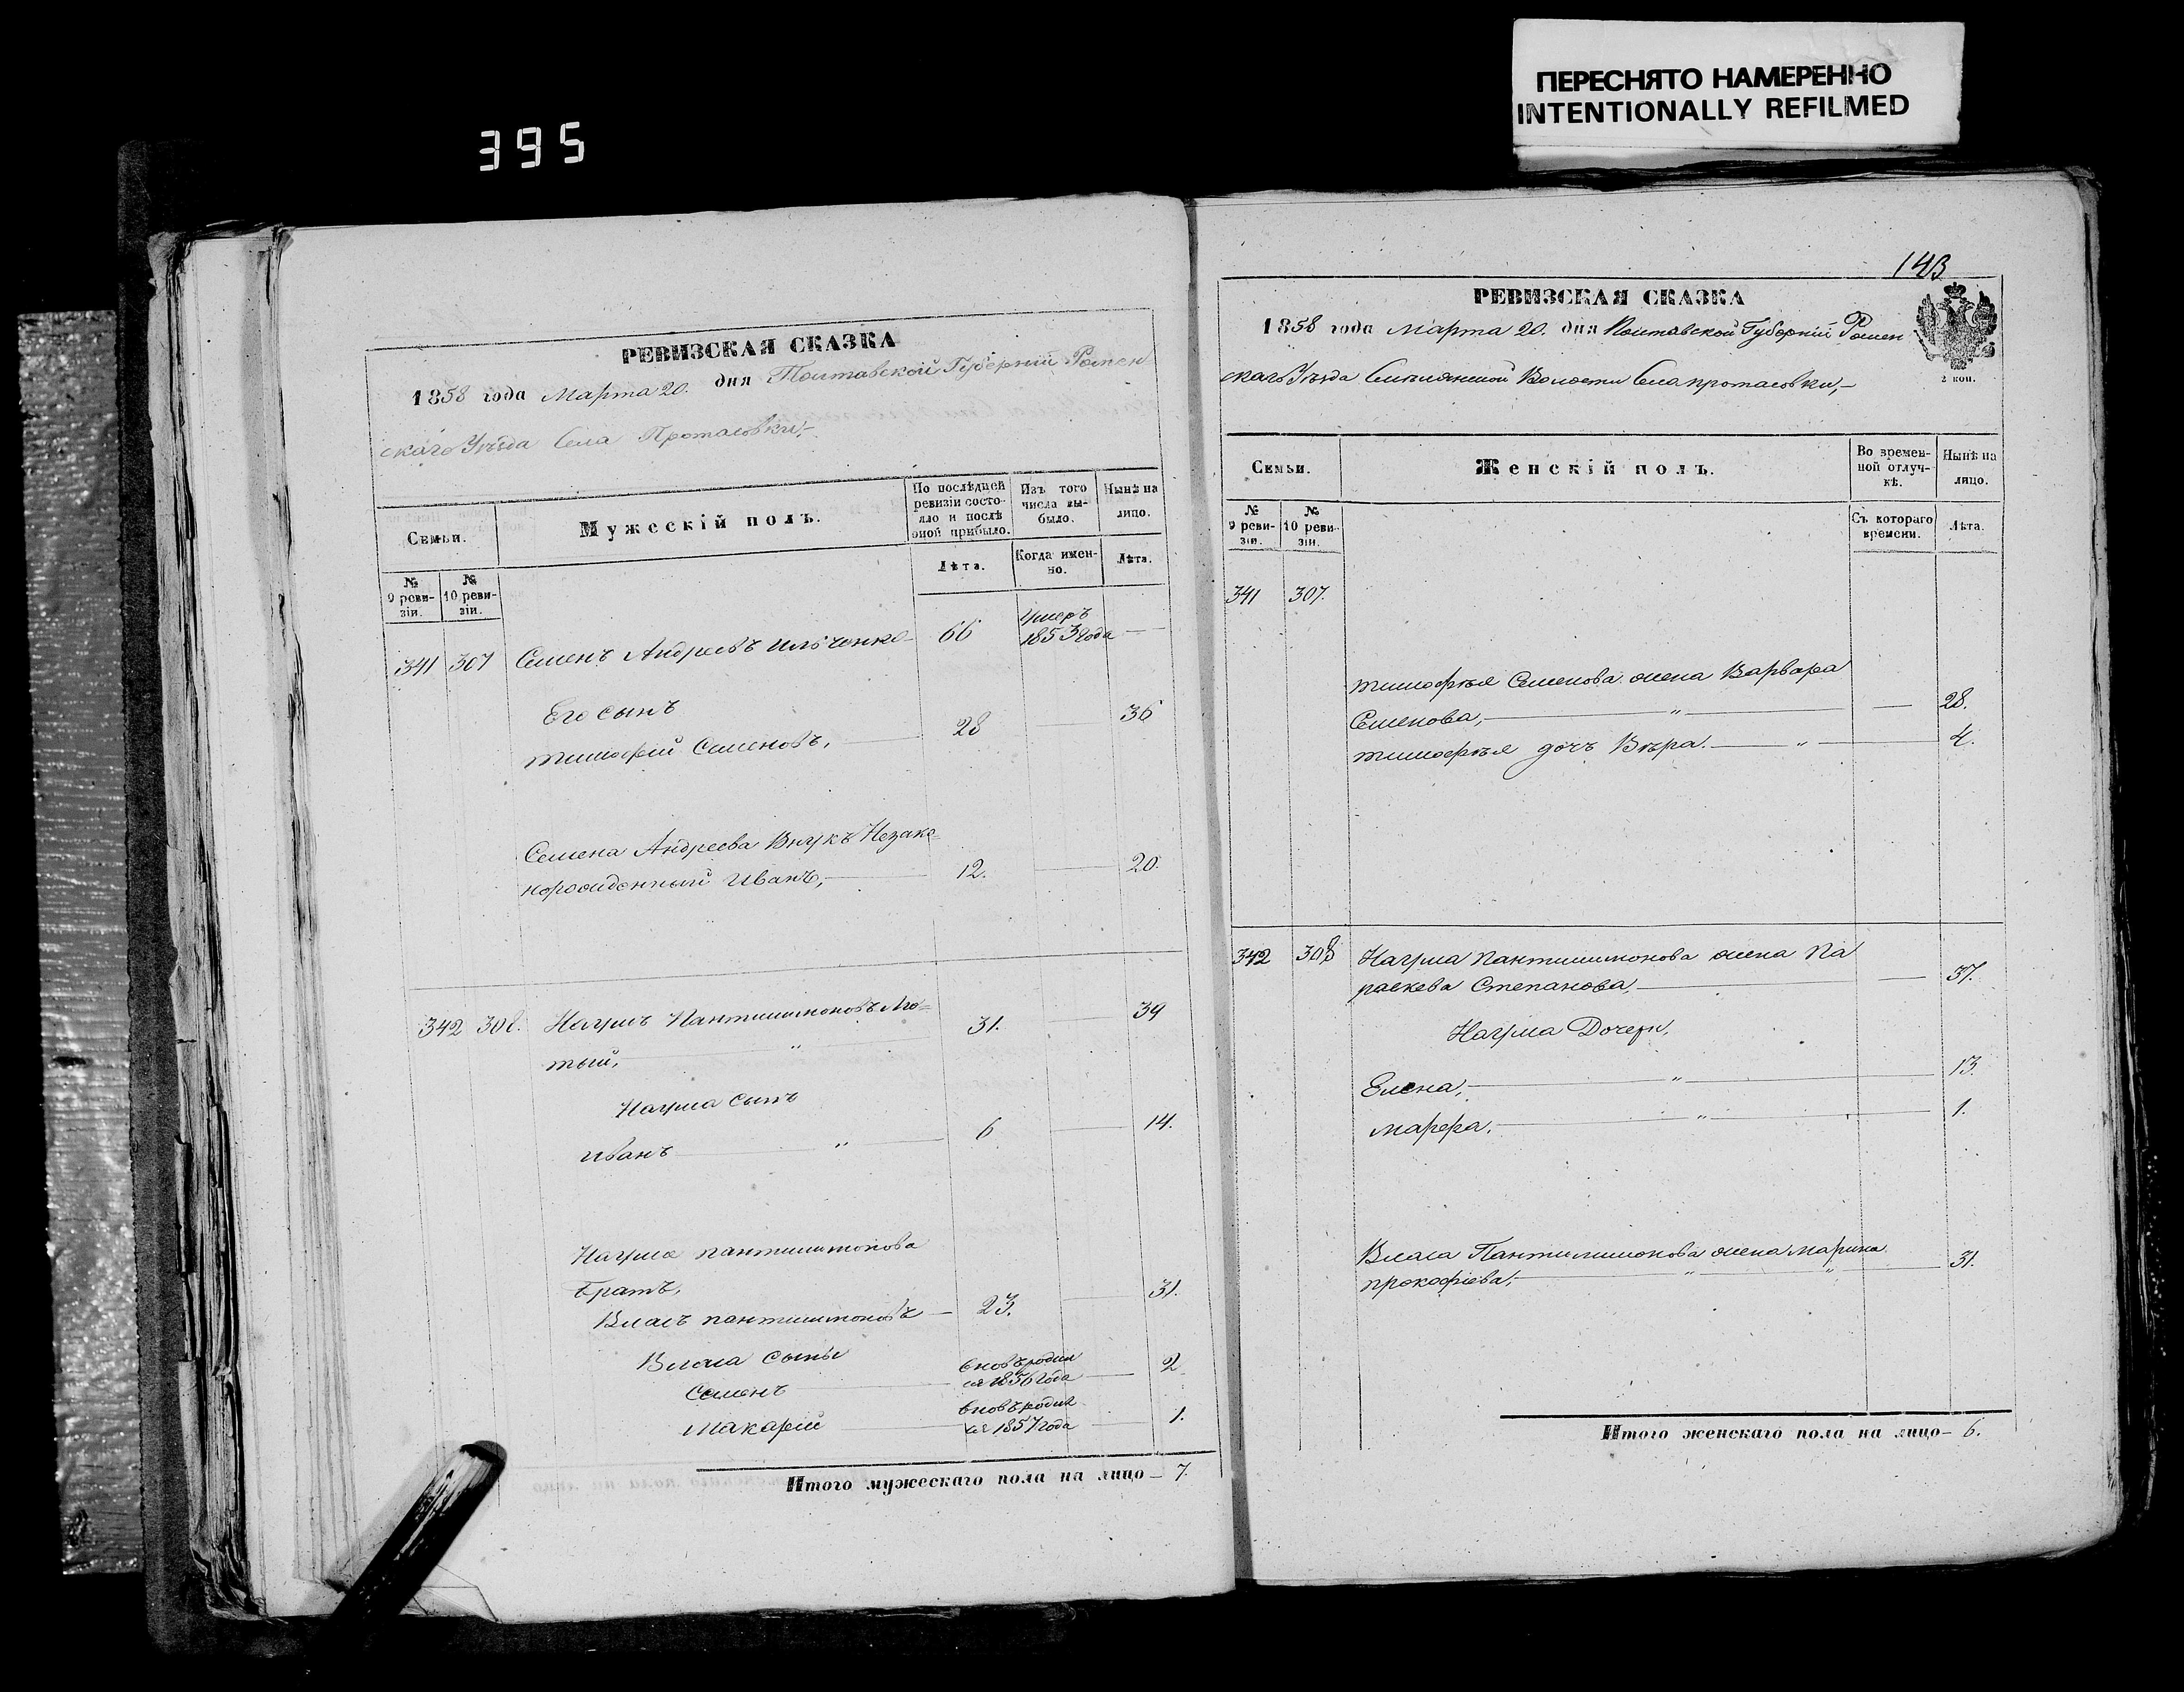 ПЕРЕСНЯТО НАМЕРЕННО
INTENTIONALLY REFILMED
395
РЕВИЗСКАЯ СКАЗКА
1858 года Марта 20. дня Полтавской Губерніи Ромен
скаго Уѣзда Села Протасовки,
Семьи.
Мужескій полъ.
По послѣдней
ревизіи состо-
яло и послѣ
оной прибыло.
Изъ того
числа вы-
было.
Нынѣ на
лицо.
№
9 реви-
зіи.
№
10 реви-
зіи.
Лѣта.
Когда имен-
но.
Лѣта.
341 307 Семенъ Андреевъ Ильченко 66 Умеръ
1853 года
Его сынъ
Тимофей Семеновъ, 28 36
Семена Андреева Внукъ Незако=
норожденный Иванъ, 12. 20.
342 308. Наумъ Пантилимоновъ Лю=
тый, " 31. 39
Наума сынъ
Иванъ " 6 14.
Наума Пантилимонова
братъ,
Власъ Пантилимоновъ 23. 31.
Власа сыны
Семенъ вновьродил
ся 1856 года 2
Макарей вновьродил
ся 1857 года 1.
Итого мужескаго пола на лицо 7.
143
РЕВИЗСКАЯ СКАЗКА
1858 года Марта 20. дня Полтавской Губерніи Ромен
скаго Уѣзда Смѣлянской Волости Села протасовки,
2 коп.
Семьи.
Женскій полъ.
Во времен-
ной отлуч-
кѣ.
Нынѣ на
лицо.
№
9 реви-
зіи.
№
10 реви-
зіи.
Съ котораго
времени.
Лѣта.
341 307.
Тимофѣя Семенова жена Варвара
Семенова, " 28.
Тимофѣя дочъ Вѣра. " 4.
342 308 Наума Пантилимонова жена Па
раскева Степанова, 37.
Наума Дочери,
Елена, " 13.
Марфа. " 1.
Власа Пантилимонова жена Марина
прокофіева, " " 31.
Итого женскаго пола на лицо 6.